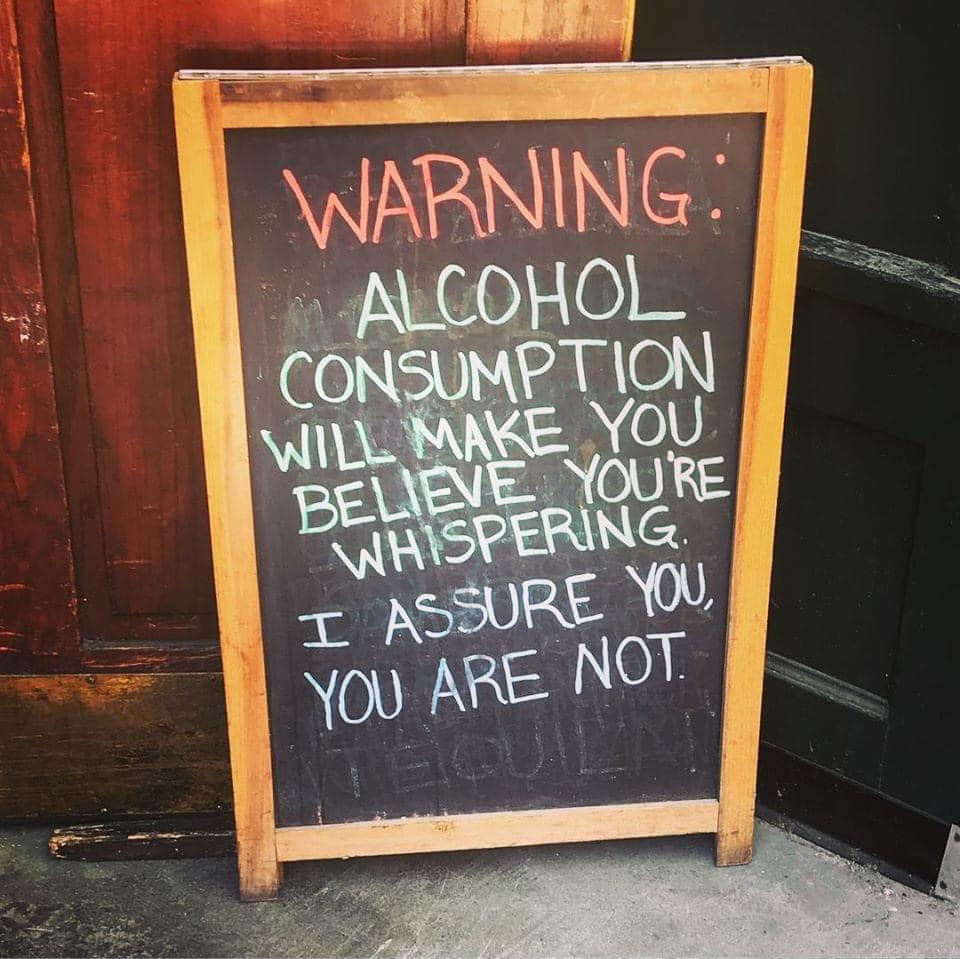 WARNING:
ALCOHOL
CONSUMPTION
WILL MAKE YOU
BELIEVE YOU'RE
WHISPERING.
I ASSURE YOU,
YOU ARE NOT.